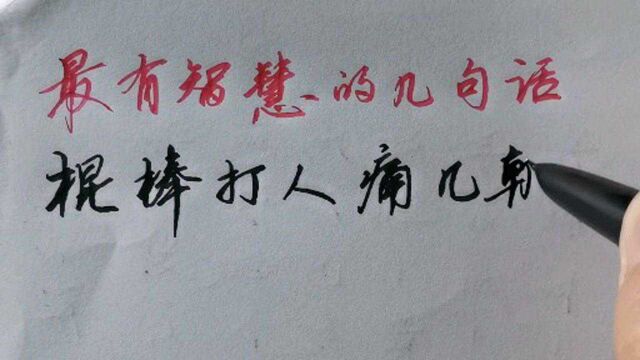 最有智慧的几句话
棍棒打人痛几